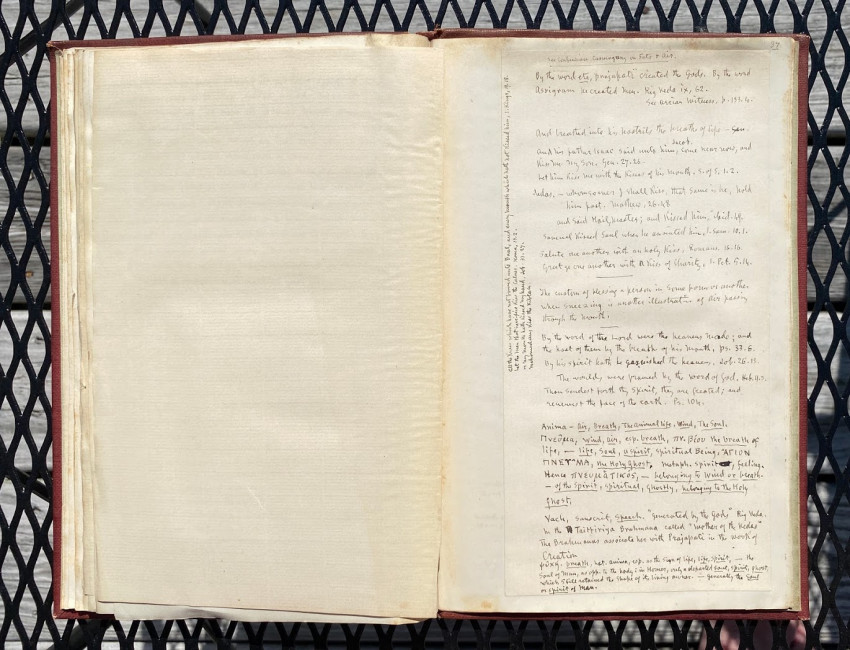 87
See Cushing in Fols & Air.
By the word etc, prajapati created the Gods. By the word
Assigram he created Men. Rig Veda ix, 62.
See Arrian Witness, p. 193.
And breathed into his nostrils the breath of life — Gen.
Jacob.
And his father Isaac said unto him, Come near now, and
Kiss me my Son. Gen. 27.26.
Let him Kiss me with the Kisses of his Mouth, S. of S. 1.2.
Judas, — whomsoever I shall kiss, that same is he, hold
him fast. Mathew, 26.48
and said Hail, Master; and Kissed him, 49.
Samuel Kissed Saul when he anointed him, 1. Sam. 10.1.
Salute one another with an holy Kiss. Romans 16.16
Greet ye one another with a Kiss of Charity, 1. Pet. 5.14.
The custom of blessing a person in some form or another
when sneezing is another illustration of air passing
through the mouth.
By the word of the Lord were the heavens made; and
the host of them by the breath of his Mouth, ps. 33.6.
By his spirit hath he garnished the heavens, Job. 26.13.
The worlds were framed by the word of God, Heb. 11.3.
Thou sendest forth thy Spirit, they are created; and
renewest the face of the earth. Ps. 104.
Anima — Air, Breath, The animal life, Wind, The Soul.
Πνεῦμα, wind, air, esp. breath, πν. βίου the breath of
life, — life, soul, a spirit, spiritual Being, ἍΓΙΟΝ
ΠΝΕῦΜΑ, the Holy Ghost, metaph. spirit, feeling.
Hence ΠΝΕΥΜΑΤΙΚΌΣ, — belonging to wind or breath
— of the spirit, spiritual, ghostly, belonging to the Holy
Ghost.
Vach, sanscrit, speech. "generated by the Gods" Rig Veda.
In the Taittiriya Brahmana called "mother of the Vedas"
The Brahmanas associate her with Prajapati in the work of
Creation
ψυχή. breath, Lat. anima, esp. as the sign of life, life, spirit, — the
Soul of Man, as opp. to the body; in Homer, only a departed soul, spirit, ghost,
which still retained the shape of its living owner. — generally the soul
or spirit of Man.
all the knees which have not bowed unto Baal, and every mouth which hath not kissed him, 1. Kings, 19.18.
let the men that sacrifice kiss the calves. Hosea, 13.2.
or my mouth hath kissed my hand. Job 31.27.
Mohammedans kiss the Kaaba